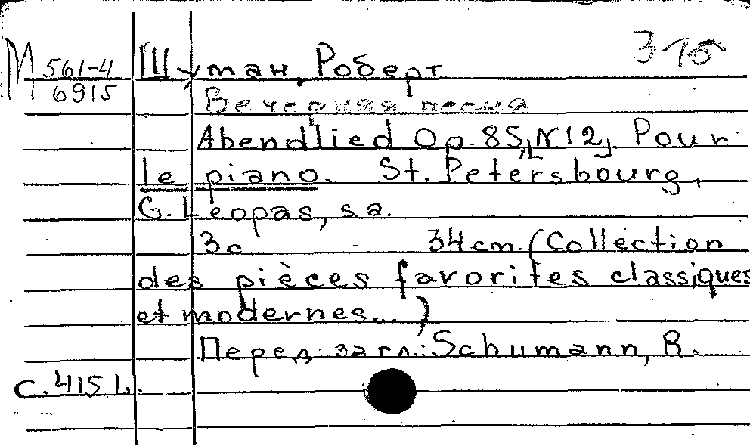 М 561-4
6915
Шуман, Роберт
315
Вечерняя песня
Abendlied Op. 85, N12, Pour
le piano. St. Petersbourg,
G. Leopas, s.a.
3c 34cm. (Collection
des pièces favorites classiques
et modernes...)
Перед загл.: Schumann, R.
С. 415 L.